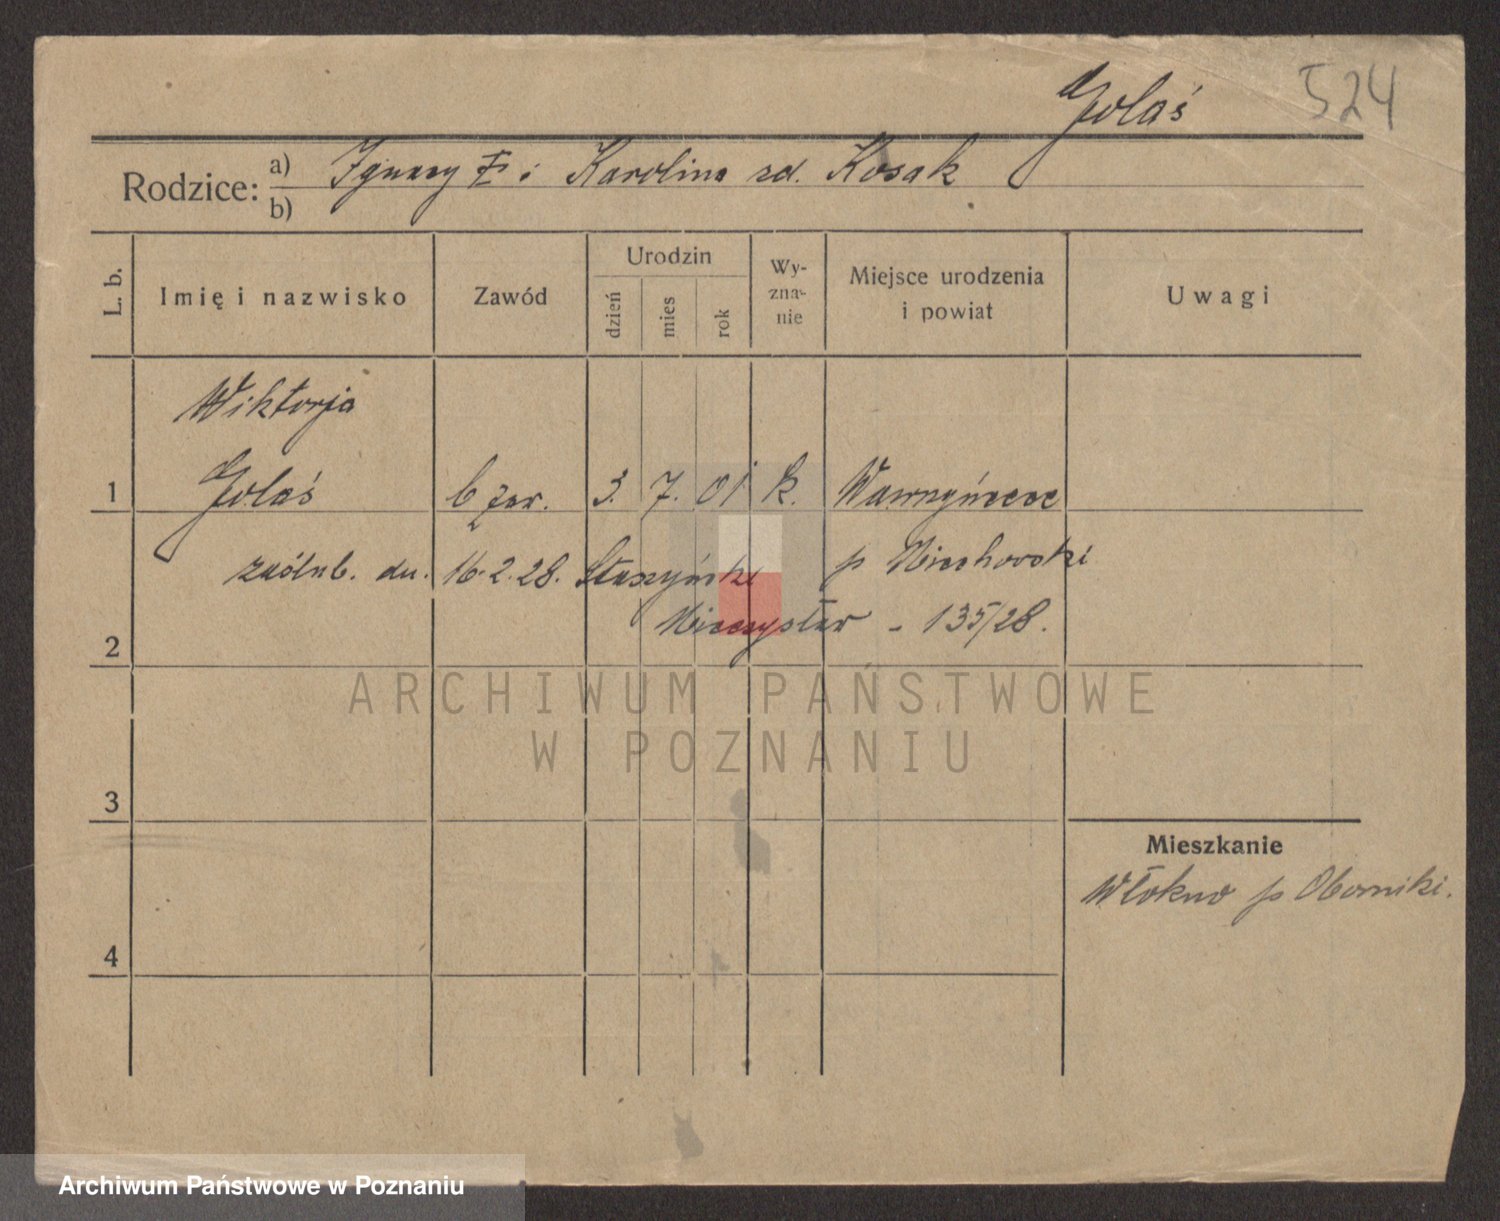 Golaś 524
Rodzice: a) Ignacy i Karolina zd. Kosak
b)
L. b. Imię i nazwisko Zawód Urodzin dzień mies rok Wy-zna-nie Miejsce urodzenia i powiat Uwagi
Wiktorja
1 Golaś b. zaw. 3. 7. 01 k.
zaślub. dn. 16.2.28. Staszyński p Miechowski
2 Mieczysław - 135/28.
ARCHIWUM PAŃSTWOWE
W POZNANIU
3
Mieszkanie
Włokno p Oborniki.
4
Archiwum Państwowe w Poznaniu